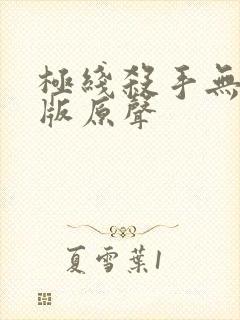 極綫殺手無
版原聲
夏雪葉1